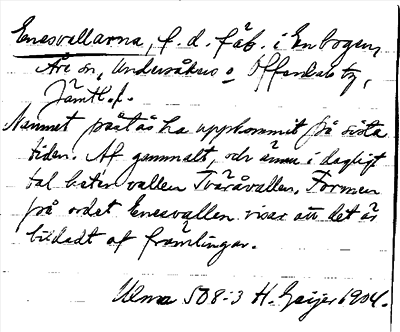 Enesvallarna, f. d. fäb. i Enbogen,
Åre sn, Undersåkers o Offerdals tg,
Jämtl. l.
Namnet påstås ha uppkommit på sista
tiden. Af gammalt, och ännu i dagligt
tal heter vallen Tväråvallen. Formen
på ordet Enesvallen visar att det är
bildadt af främlingar.
Ulma 508:3 H. Geijer 1904.